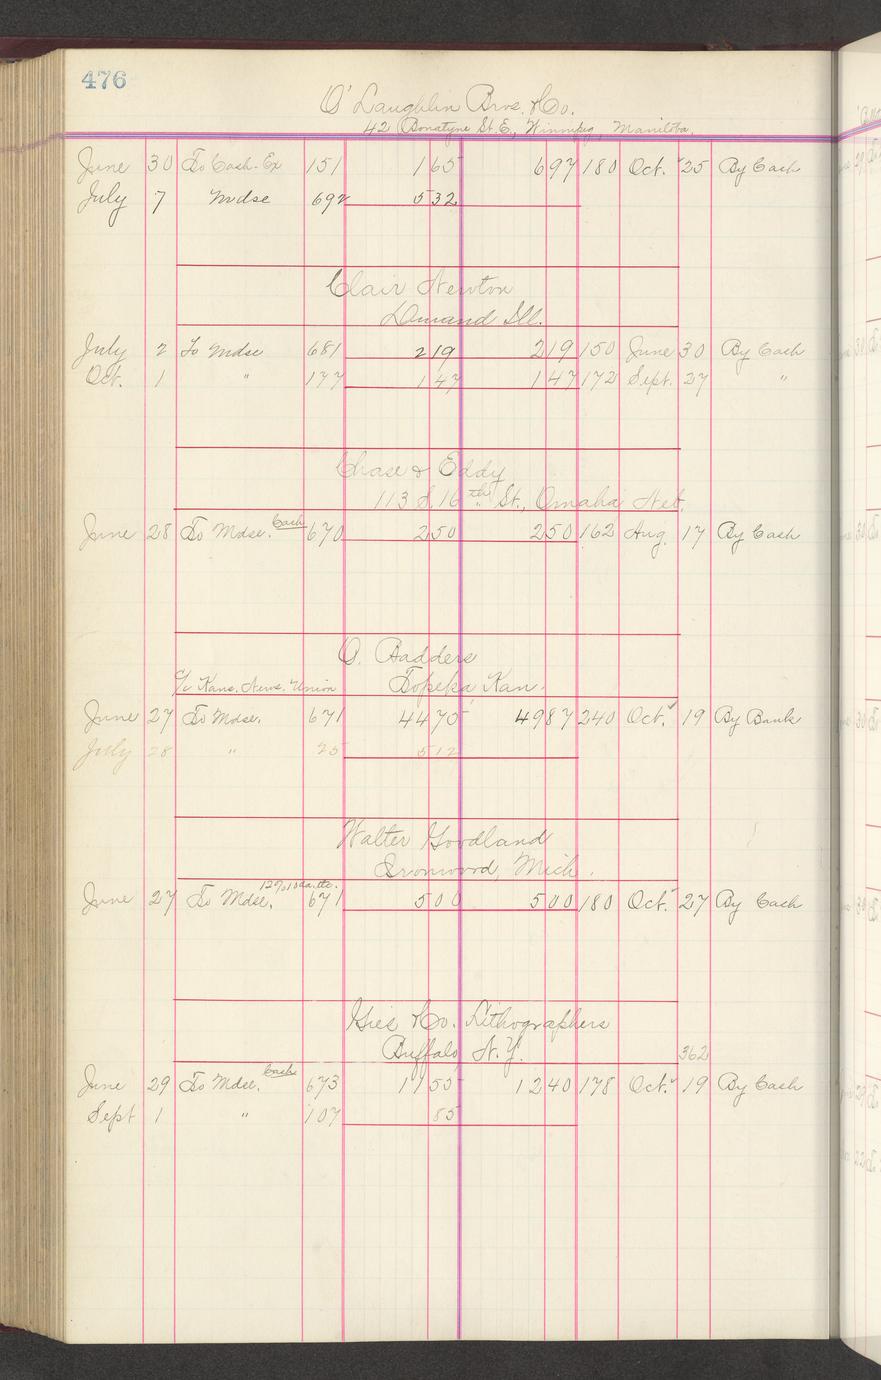 476
O'Laughlin Bros. & Co.
42 Bonatyne St. E., Winnipeg, Manitoba.
June 30 To Cash-Ex 151 165 697 180 Oct. 25 By Cash
July 7 Mdse 692 532
Clair Newton
Ill.
July 2 To Mdse 681 219 219 150 June 30 By Cash
Oct. 1 " 177 147 147 172 Sept. 27 "
Chase & Eddy
113 S. 16th St., Omaha Neb.
June 28 To Mdse. Cash 670 250 250 162 Aug. 17 By Cash
O. Hadders
c/o Kans. News. Union Topeka, Kan.
June 27 To Mdse. 671 4475 4987 240 Oct. 19 By Bank
July 28 " 25 512
Walter Goodland
Ironwood, Mich.
June 27 To Mdse. 671 500 500 180 Oct. 27 By Cash
Gies & Co. Lithographers
Buffalo, N.Y. 362
June 29 To Mdse. Cash 673 1155 1240 178 Oct. 19 By Cash
Sept 1 " 107 85